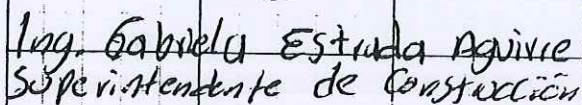 Ing. Gabriela Estrada Aguirre
Superintendente de Construcción